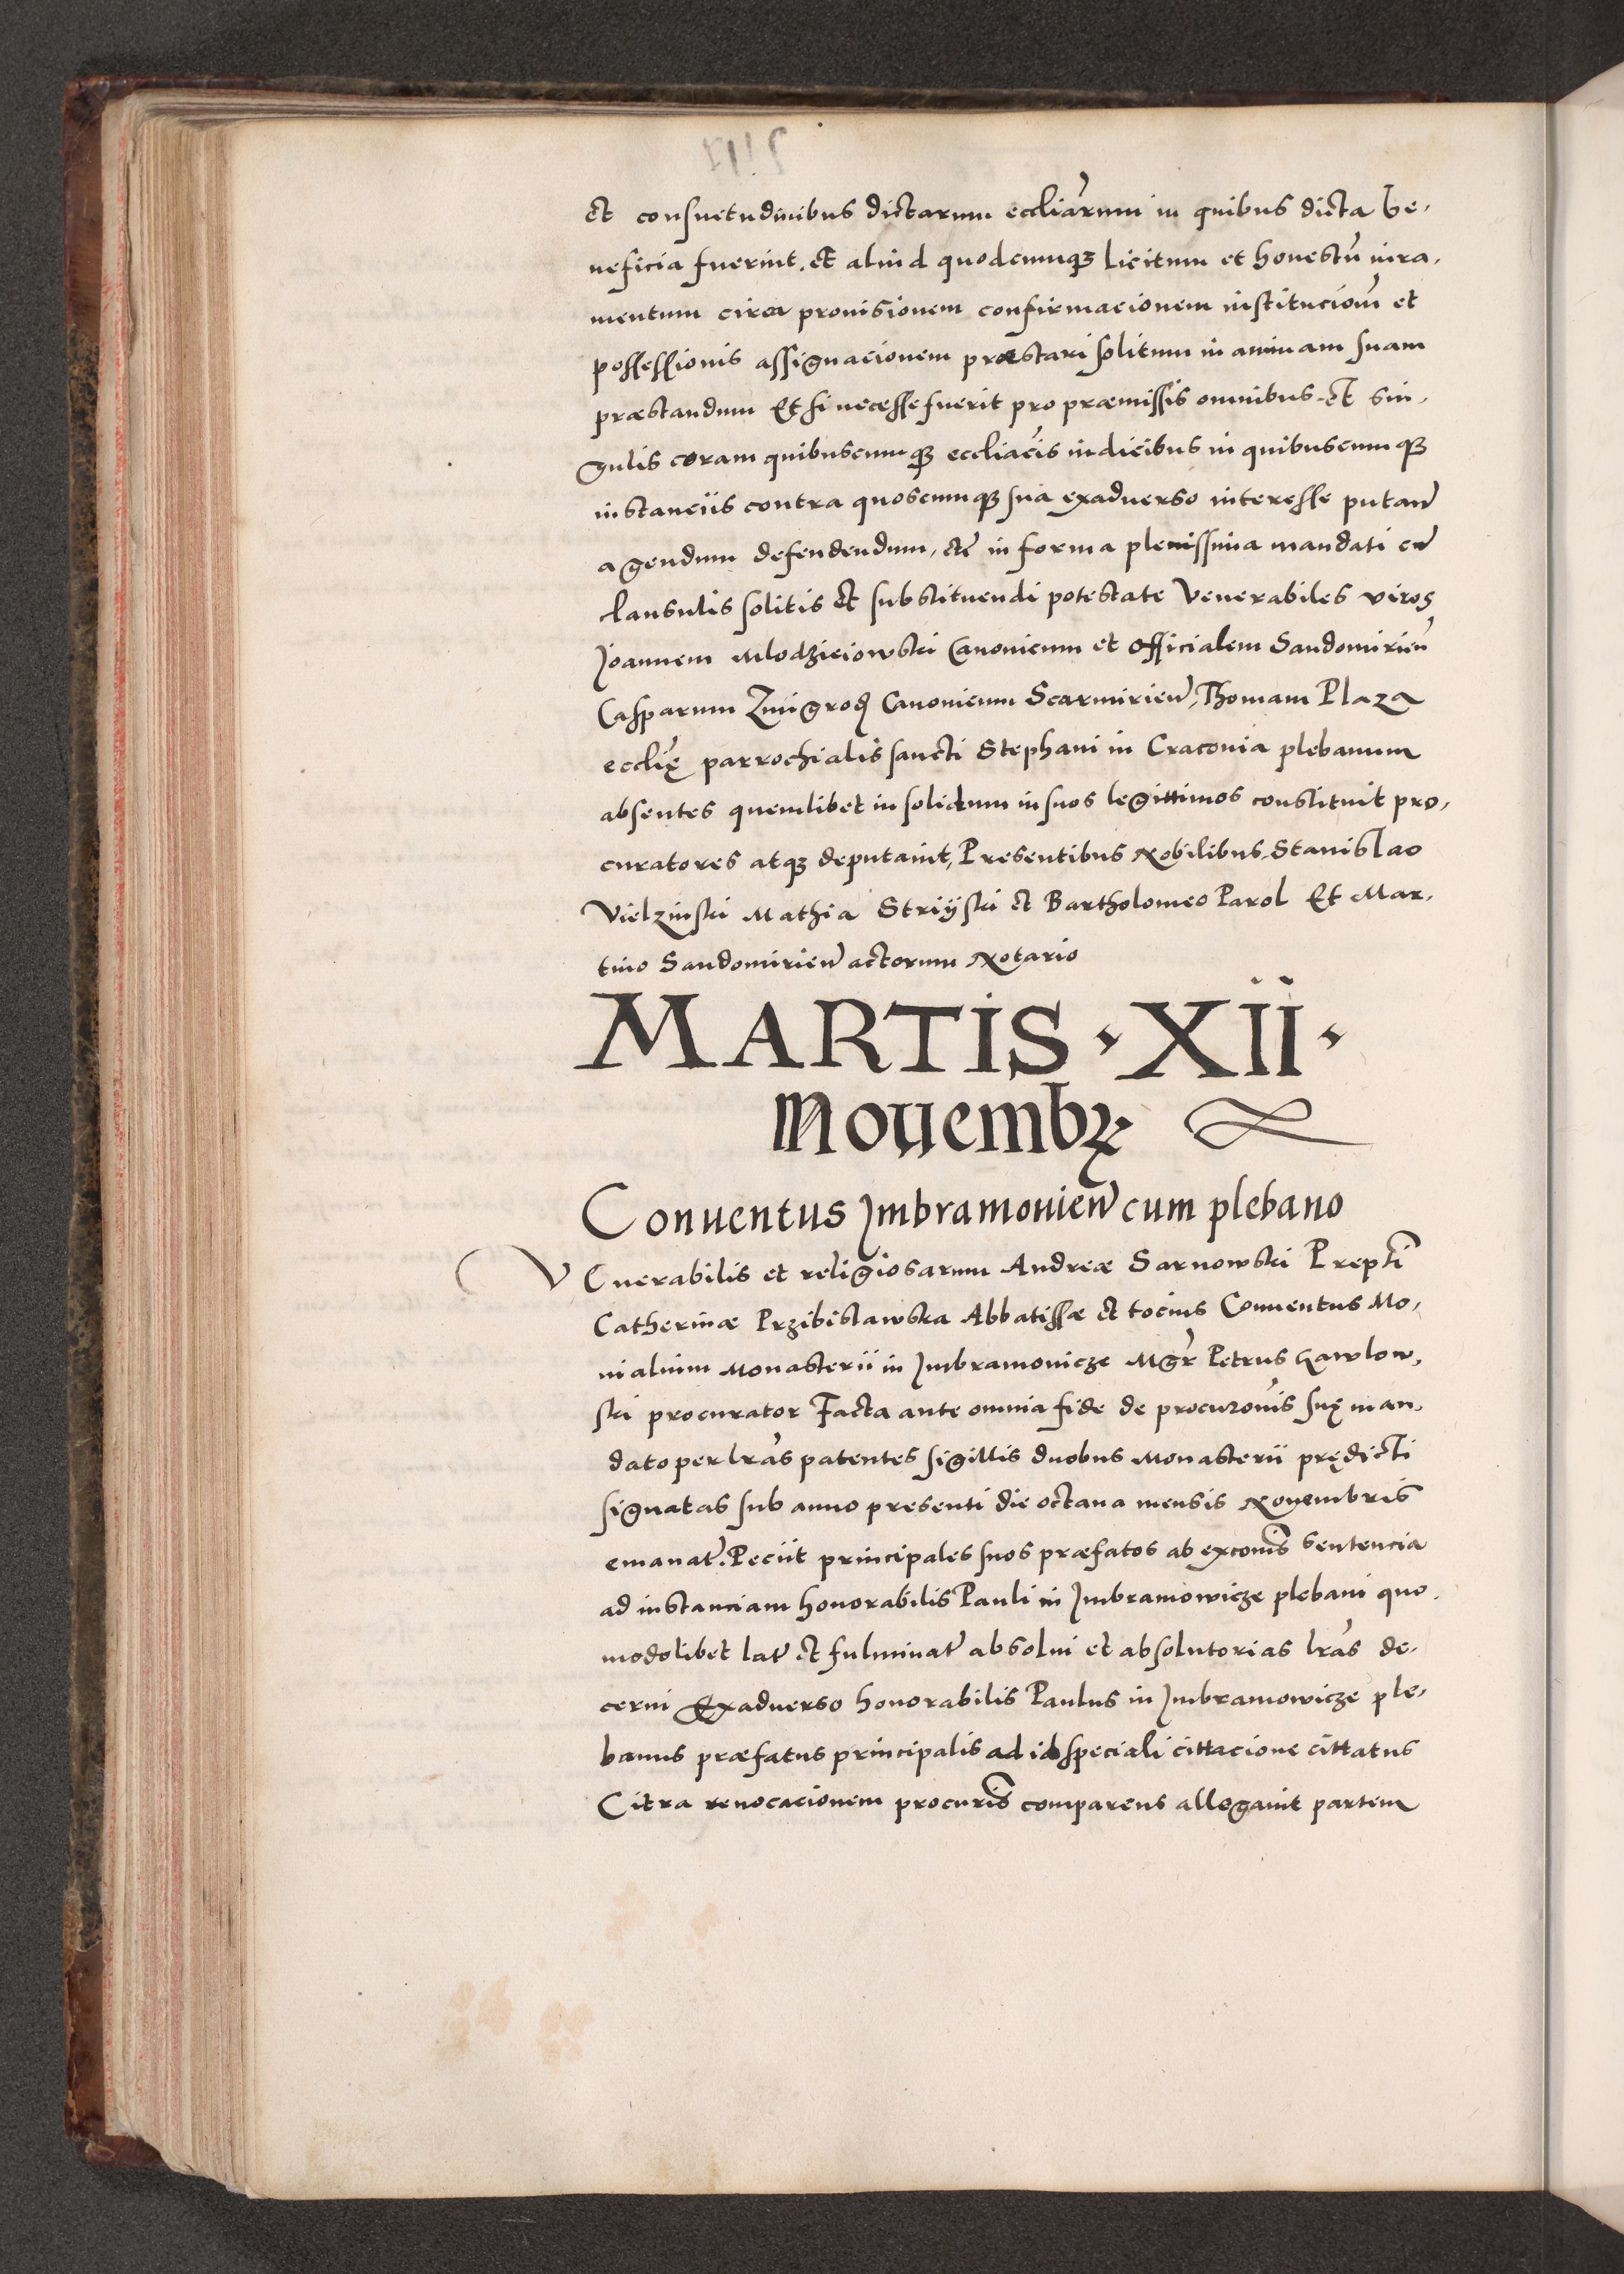 et consuetudinibus dictarum eccliarum in quibus dicta be,
neficia fuerint. et aliud quodcumqꝫ licitum et honestū iura,
mentum circa prouisionem confirmacionem institucioūm et
possessionis assignacionem præstari solitum in animam suam
præstandum Et si necesse fuerit pro præmissis omnibus et sin,
gulis coram quibuscumqꝫ eccliacis iudicibus in quibuscumqꝫ
instanciis contra quoscumqꝫ sua exaduerso interesse putan̄
agendum defendendum, etc̄ in forma plenissima mandati cū
clausulis solitis et substituendi potestate Venerabiles viros
Joannem Mlodzieiowski Canonicum et Officialem Sandomirien̄
Casparum Zmigrod Canonicum Scarmirien̄, Thomam Plaza
ecclię parrochialis sancti Stephani in Cracouia plebanum
absentes quemlibet in solidum in suos legittimos constituit pro,
curatores atqꝫ deputauit, Presentibus Nobilibus Stanislao
Vielzinski Mathia Striÿski et Bartholomeo Parol Et Mar,
tino Sandomirien̄ actorum Notario
MARTIS · XII ·
Nouembrꝫ
Conuentus Jmbramouien̄ cum plebano
VEnerabilis et religiosarum Andreæ Sarnowski Prepti
Catherinæ Przibislawska Abbatissæ et tocius Conuentus Mo,
nialium Monasterii in Jmbramouicze Mgr̄ Petrus Gawlow,
ski procurator Facta ante omnia fide de procurōnis suę man,
dato per lras patentes sigillis duobus Monasterii prędicti
signatas sub anno presenti die octaua mensis Nouembris
emanat̄. Peciit principales suos præfatos ab excomis sentencia
ad instanciam honorabilis Pauli in Jmbramowicze plebani quo,
modolibet lat̄ et fulminat̄ absolui et absolutorias lras de,
cerni Exaduerso honorabilis Paulus in Jmbramowicze ple,
banus præfatus principalis ad id speciali cittacione cittatus
Citra reuocacionem procuris comparens allegauit partem